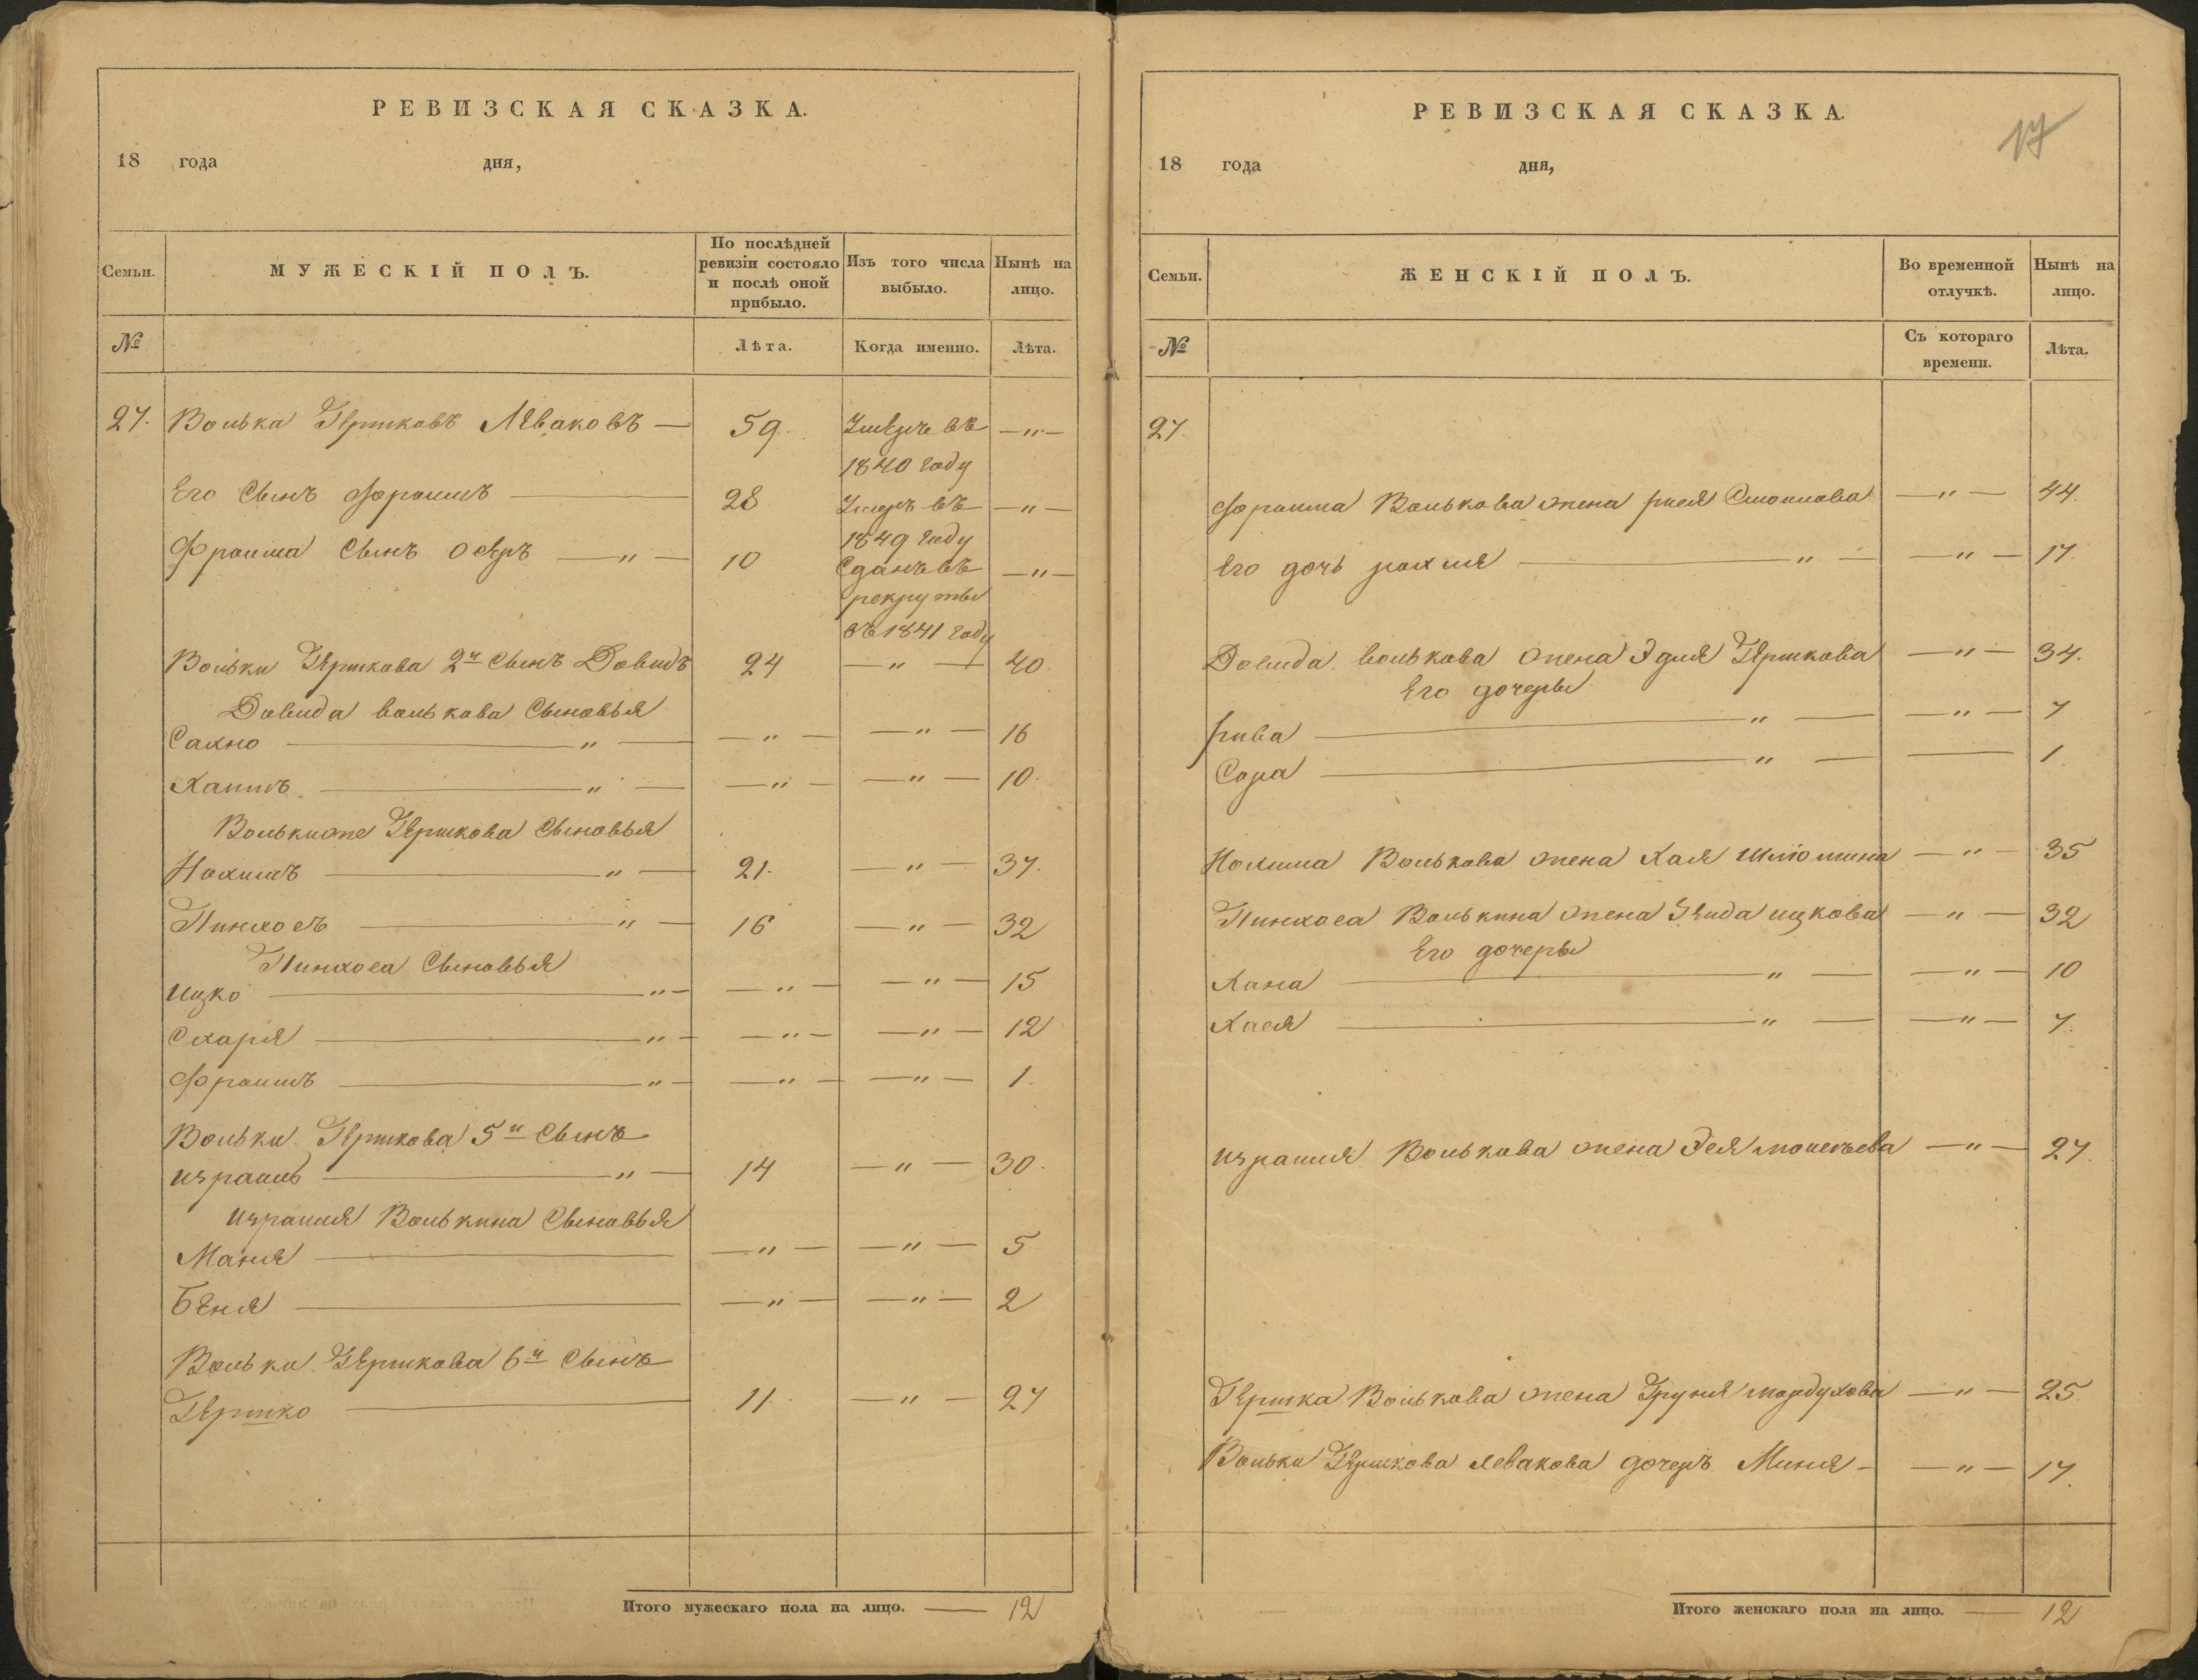 РЕВИЗСКАЯ СКАЗКА.
18 года дня,
Семьи. МУЖЕСКІЙ ПОЛЪ. По послѣдней ревизіи состояло и послѣ оной прибыло. Изъ того числа выбыло. Нынѣ на лицо.
№ Лѣта. Когда именно. Лѣта.
27. Волька Гершковъ Леваковъ — 59. Умеръ въ —„—
1840 году
Его Сынъ Фроимъ — 28 Умеръ въ —„—
1849 году
Фроима Сынъ Осеръ —„— 10 Сданъ въ —„—
рекруты
въ 1841 году
Вольки Гершкова 2й Сынъ Довидъ 24 —„— 40.
Довида Волькова Сыновья
Сахно —„— —„— —„— 16
Хаимъ —„— —„— —„— 10.
Волькиже Гершкова Сыновья
Нохимъ —„— 21. —„— 37.
Пинхосъ —„— 16 —„— 32
Пинхоса Сыновья
Ицко —„— —„— —„— 15
Схарія —„— —„— —„— 12
Фроимъ —„— —„— —„— 1.
Вольки Гершкова 5й Сынъ
Израиль —„— 14 —„— 30.
Израиля Волькина Сыновья
Маня — —„— —„— 5
Беня — —„— —„— 2
Вольки Гершкова 6й Сынъ
Гершко — 11. —„— 27
Итого мужескаго пола на лицо. — 12
РЕВИЗСКАЯ СКАЗКА.
17
18 года дня,
Семьи. ЖЕНСКІЙ ПОЛЪ. Во временной отлучкѣ. Нынѣ на лицо.
№ Съ котораго времени. Лѣта.
27.
Фроима Волькова жена —„— 44.
Его дочь рохля —„— —„— 17.
Довида Волькова жена Эдля Гершкова —„— 34.
Его дочеры
рива —„— —„— 7
Сора —„— — 1.
Нохима Волькова жена Хая Шлюмина —„— 35
Пинхоса Волькина жена Ицкова —„— 32
Его дочеры
Хана —„— —„— 10
Хася —„— —„— 7.
Израиля Волькова жена —„— 27.
Гершка Волькова жена Груня мордухова —„— 25.
Вольки Гершкова Левакова дочеръ Миня — —„— 17.
Итого женскаго пола на лицо. — 12